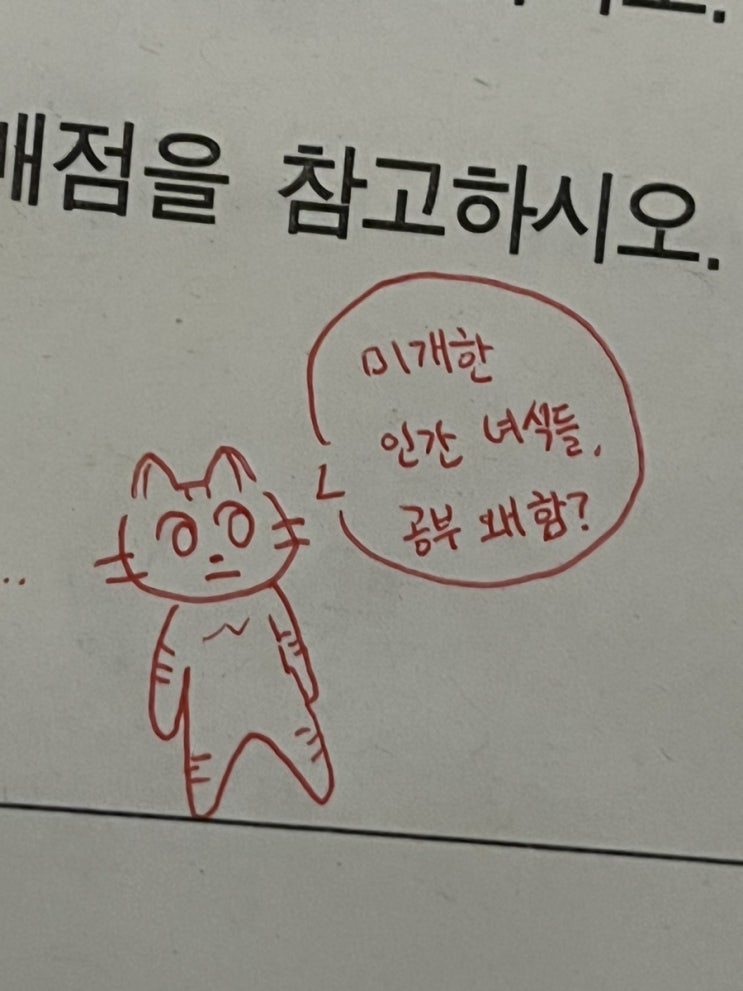 배점을 참고하시오.
미개한
인간 녀석들,
공부 왜 함?
..